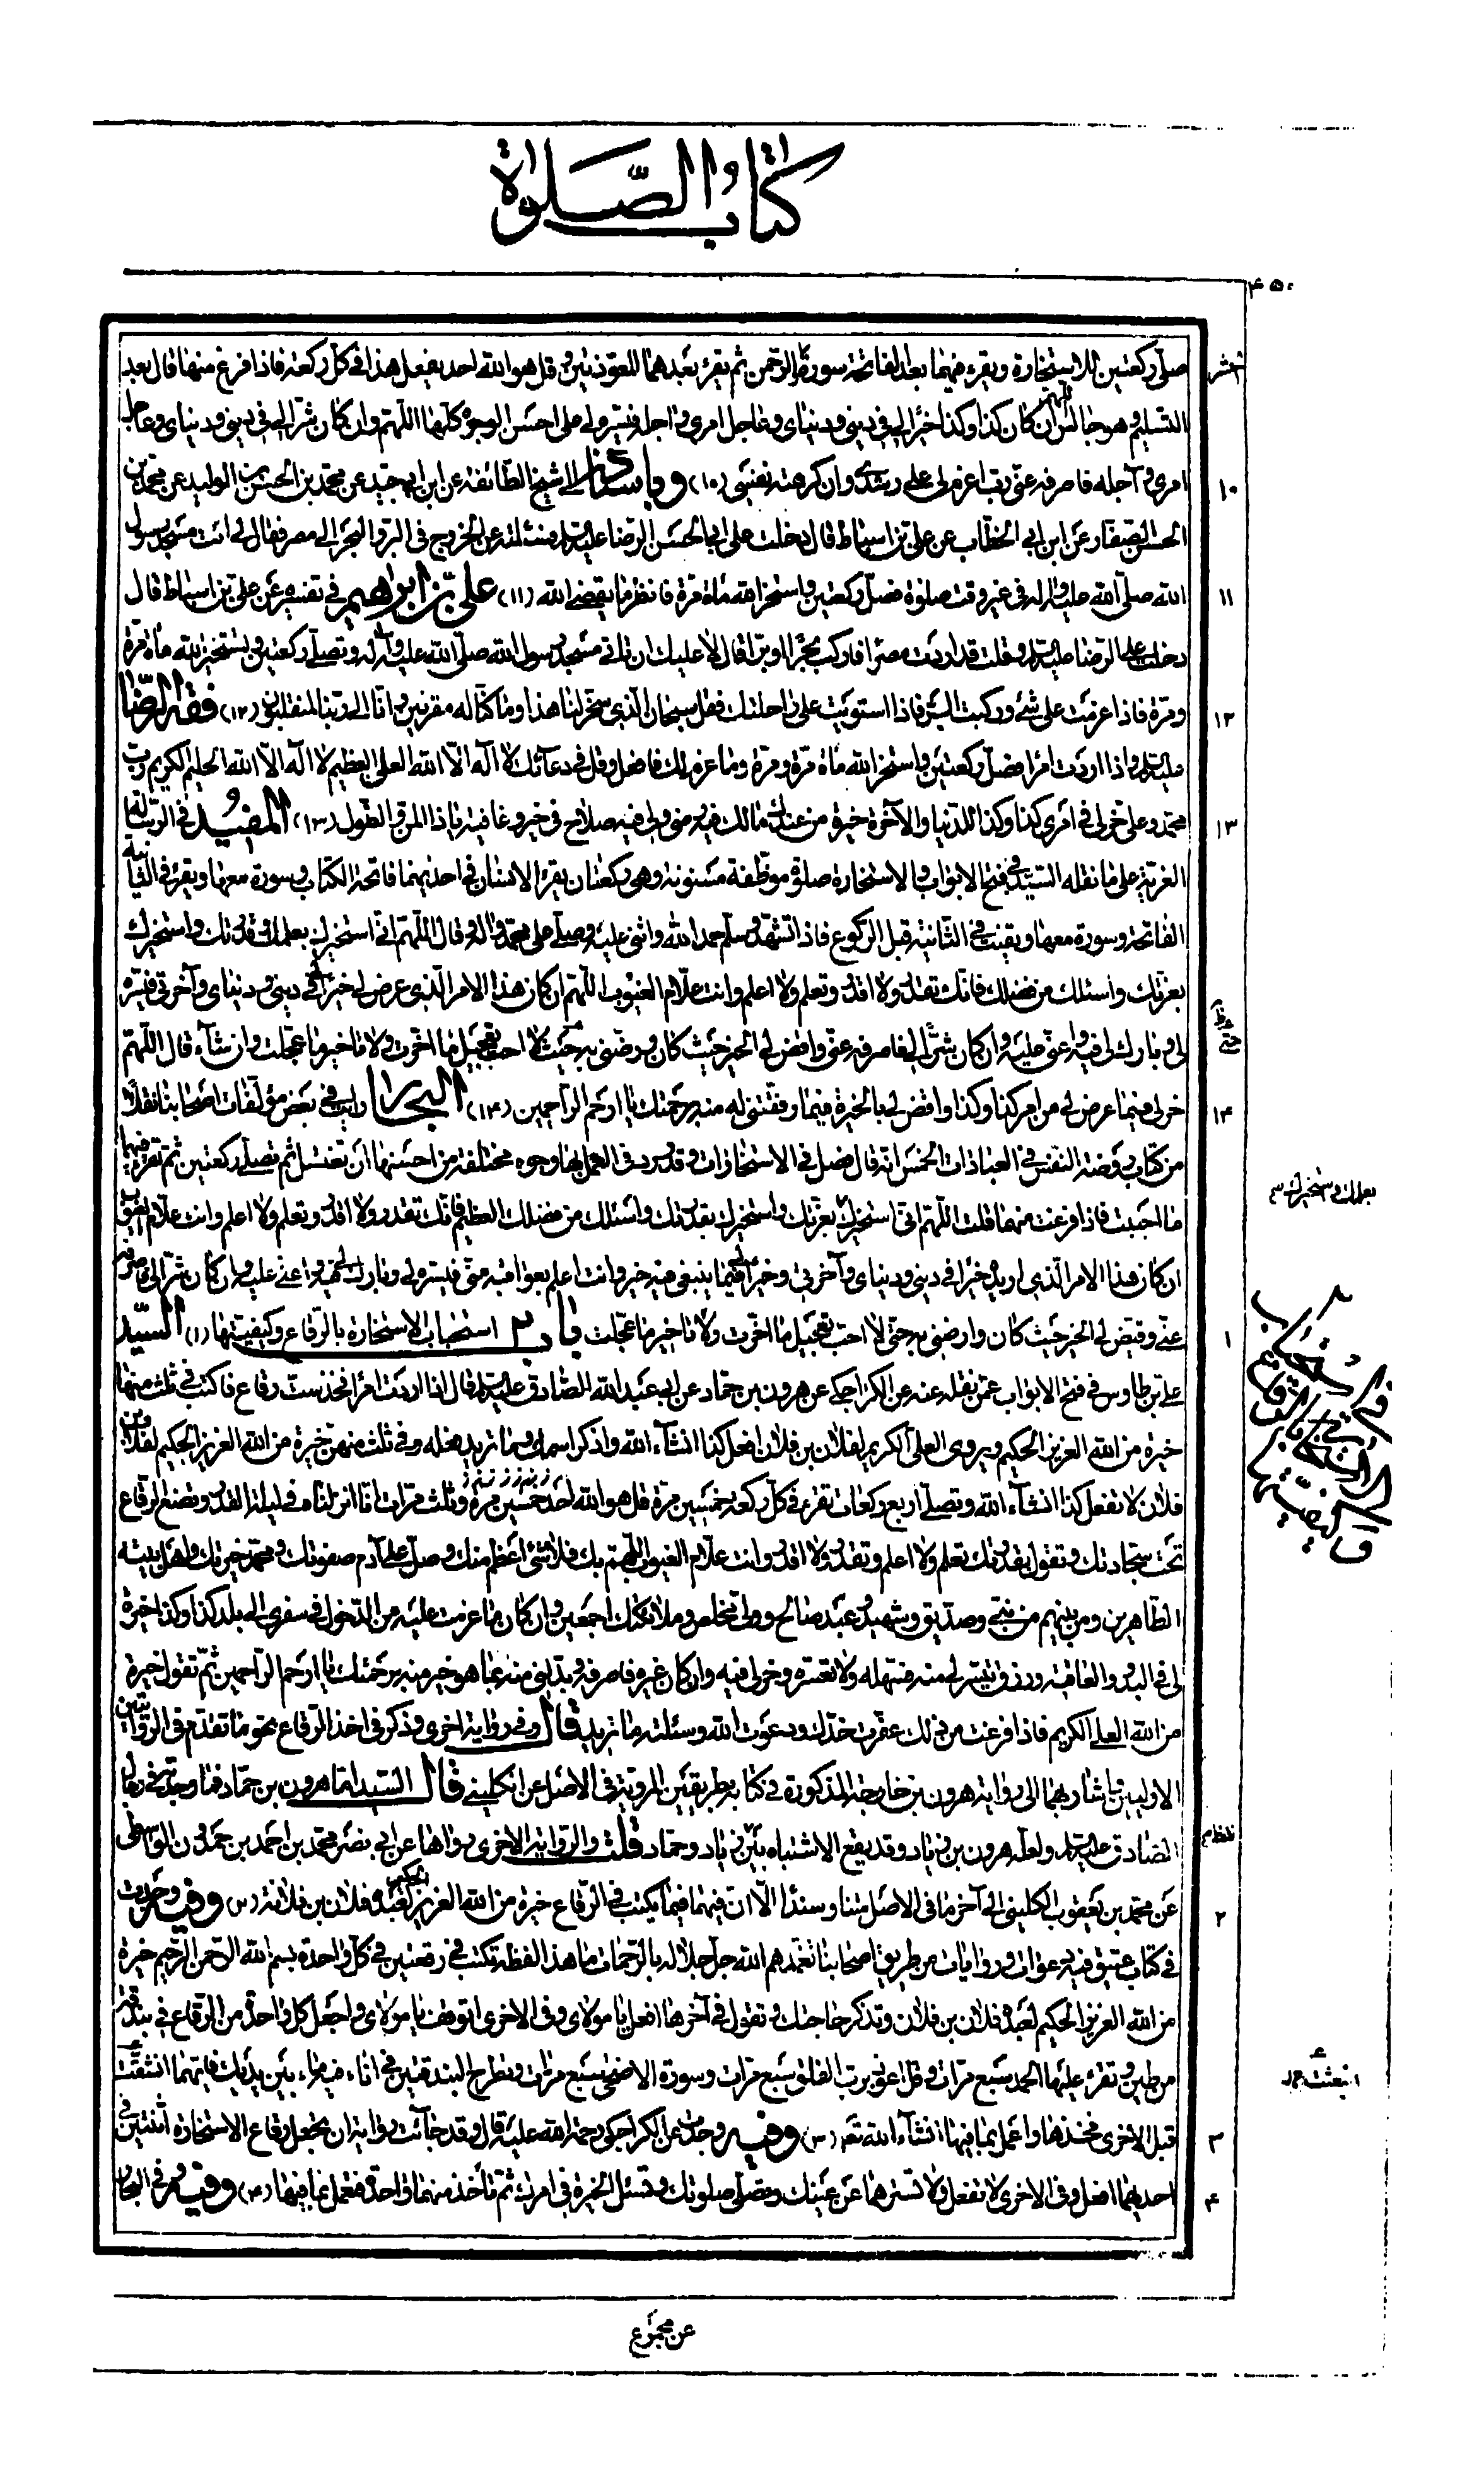 كتاب الصلوة
٤٥٠
صلى ركعتين للاستخارة ويقرء فيهما بعد الفاتحة سورة الرحمن ثم يقرء بعدهما المعوذتين وقل هو الله احد يفعل هذا في كل ركعة فاذا فرغ منها قال بعد
التسليم وهو جالس اللهم ان كان كذا وكذا خيرا لي في ديني ودنياي وعاجل امري واجله فيسره لي على احسن الوجوه كلها اللهم وان كان شرا لي في ديني ودنياي وعاجل
١٠
امري وآجله فاصرفه عني رب اعزم لي على رشدي وان كرهته نفسي (١٠) وباسناد الشيخ الطائفة عن ابن ابي جيد عن محمد بن الحسن بن الوليد عن محمد بن
الحسن الصفار عن ابن ابي الخطاب عن علي بن اسباط قال دخلت على ابي الحسن الرضا عليه السلام فسئلته عن الخروج في البر والبحر الى مصر فقال لي ائت مسجد رسول
١١
الله صلى الله عليه وآله في غير وقت صلوة فصل ركعتين واستخر الله مأة مرة فانظر ما يقضي الله (١١) علي بن ابراهيم في تفسيره عن علي بن اسباط قال
دخلت على الرضا عليه السلام وقلت قد اردت مصرا فاركب بحرا او برا فقال لا عليك ان تاتي مسجد رسول الله صلى الله عليه وآله وتصلي ركعتين وتستخير الله مأة مرة
١٢
ومرة فاذا عزمت على شيء وركبت البر فاذا استويت على راحلتك فقل سبحان الذي سخر لنا هذا وما كنا له مقرنين وانا الى ربنا لمنقلبون (١٢) فقه الرضا
عليه السلام واذا اردت امرا فصل ركعتين واستخر الله مأة مرة ومرة وما عزم لك فافعل وقل في دعائك لا اله الا الله العلي العظيم لا اله الا الله الحليم الكريم رب
١٣
محمد وعلي خر لي في امري كذا وكذا للدنيا والآخرة خيرة من عندك مالك فيه رضى ولي فيه صلاح في خير وعافية يا ذا المن والطول (١٣) المفيد في الرسالة
العزية على ما نقله السيد في فتح الابواب والاستخارة صلوة موظفة مسنونة وهي ركعتان يقرء الانسان في احديهما فاتحة الكتاب وسورة معها ويقرء في الثانية
الفاتحة وسورة معها ويقنت في الثانية قبل الركوع فاذا تشهد وسلم حمد الله واثنى عليه وصلى على محمد وآله وقال اللهم اني استخيرك بعلمك وقدرتك واستخيرك
بعزتك واسئلك من فضلك فانك تقدر ولا اقدر وتعلم ولا اعلم وانت علام الغيوب اللهم ان كان هذا الامر الذي عرض لي خيرا في ديني ودنياي وآخرتي فيسره
لي وبارك لي فيه واعني عليه وان كان شرا لي فاصرفه عني واقض لي الخير حيث كان ورضني به حتى لا احب تعجيل ما اخرت ولا تاخير ما عجلت وان شاء قال اللهم
١٤
خر لي فيما عرض لي من امر كذا وكذا واقض لي بالخيرة فيما وفقتني له منه برحمتك يا ارحم الراحمين (١٤) البحار رايت في بعض مؤلفات اصحابنا نقلا
من كتاب روضة النفس في العبادات الخمس انه قال فصل في الاستخارات وقد ورد في العمل بها وجوه مختلفة من احسنها ان تغتسل ثم تصلي ركعتين ثم تقرء فيهما
ما احببت فاذا فرغت منهما قلت اللهم اني استخيرك بعزتك واستخيرك بقدرتك واسئلك من فضلك العظيم فانك تقدر ولا اقدر وتعلم ولا اعلم وانت علام الغيوب
بعلمك واستخيرك
ان كان هذا الامر الذي اريده خيرا في ديني ودنياي وآخرتي وخيرا لي فيما ينبغي فيه خير وانت اعلم بعواقبه مني فيسره لي وبارك لي فيه واعني عليه وان كان شرا لي فاصرفه
١
عني وقيض لي الخير حيث كان وارضني به حتى لا احب تعجيل ما اخرت ولا تاخير ما عجلت باب ٢ استحباب الاستخارة بالرقاع وكيفيتها (١) السيد
علي بن طاوس في فتح الابواب عمن نقله عنه عن الكراجكي عن هرون بن حماد عن ابي عبد الله الصادق عليه السلام قال اذا اردت امرا فخذ ست رقاع فاكتب في ثلث منها
خيرة من الله العزيز الحكيم ويروى العلي الكريم لفلان بن فلان افعل كذا انشاء الله واذكر اسمك وما تريد فعله وفي ثلث منهن خيرة من الله العزيز الحكيم لفلان بن
فلان لا تفعل كذا انشاء الله وتصلي اربع ركعات تقرء في كل ركعة خمسين مرة قل هو الله احد خمسين مرة وثلث مرات انا انزلناه في ليلة القدر وتضع الرقاع
تحت سجادتك وتقول بقدرتك تعلم ولا اعلم وتقدر ولا اقدر وانت علام الغيوب اللهم بك فلا شيء اعظم منك وصل على آدم صفوتك ومحمد خيرتك واهل بيته
الطاهرين ومن بينهم من نبي وصديق وشهيد وعبد صالح وولي مخلص وملائكتك اجمعين وان كان ما عزمت عليه من الدخول في سفري الى بلد كذا وكذا خيرة
لي في البدو والعاقبة ورزق تيسر لي منه فسهله ولا تعسره وخر لي فيه وان كان غيره فاصرفه وبدلني منه بما هو خير منه برحمتك يا ارحم الراحمين ثم تقول خيرة
من الله العلي الكريم فاذا فرغت من ذلك عفرت خدك ودعوت الله وسئلته ما تريد قال وفي رواية اخرى وذكر في اخذ الرقاع نحو ما تقدم في الروايتين
الاوليين واشار بهما الى رواية هرون بن خارجة المذكورة في كتابه بطريقين المروية في الاصل عن الكليني قال السيد اما هرون بن حماد فما وجدته في رجال
الصادق عليه السلام ولعله هرون بن زياد وقد يقع الاشتباه بين زياد وحماد قلت والرواية الاخرى رواها عن ابي نصر محمد بن احمد بن حمدون الواسطي
٢
عن محمد بن يعقوب الكليني الى آخر ما في الاصل متنا وسندا الا ان فيهما فيما يكتب في الرقاع خيرة من الله العزيز الحكيم لعبده فلان بن فلانة (٢) وفيه وجدت
في كتاب عتيق فيه دعوات وروايات من طريق اصحابنا تغمدهم الله جل جلاله بالرحمات ما هذا لفظه تكتب في رقعتين في كل واحدة بسم الله الرحمن الرحيم خيرة
من الله العزيز الحكيم لعبده فلان بن فلان وتذكر حاجتك وتقول في آخرها افعل يا مولاي وفي الاخرى اتوقف يا مولاي واجعل كل واحدة من الرقاع في بندقة
من طين وتقرء عليها الحمد سبع مرات وقل اعوذ برب الفلق سبع مرات وسورة الاضحى سبع مرات وتطرح البندقتين في اناء فيه ماء بين يديك فايهما انشقت
٣
قبل الاخرى فخذها واعمل بما فيها انشاء الله تعالى (٣) وفيه وجدت عن الكراجكي رحمة الله عليه قال وقد جائت رواية ان تجعل رقاع الاستخارة اثنتين في
٤
احديهما افعل وفي الاخرى لا تفعل ولا تسترهما عن عينك وتصلي صلوتك وتسئل الخيرة في امرك ثم تأخذ منهما واحدة فتعمل بما فيها (٤) وفيه في البحار
عن مجموع